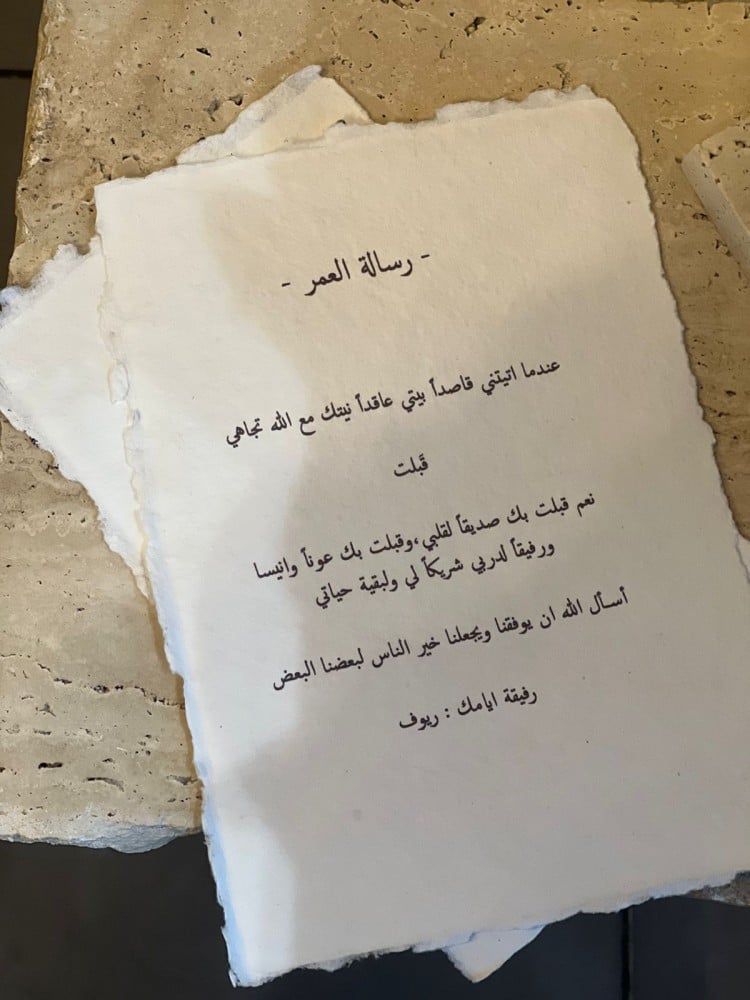 - رسالة العمر -
عندما اتيتني قاصداً بيتي عاقداً نيتك مع الله تجاهي
قَبلت
نعم قبلت بك صديقاً لقلبي،وقبلت بك عوناً وانيسا
ورفيقاً لدربي شريكاً لي ولبقية حياتي
أسأل الله ان يوفقنا ويجعلنا خير الناس لبعضنا البعض
رفيقة ايامك : ريوف